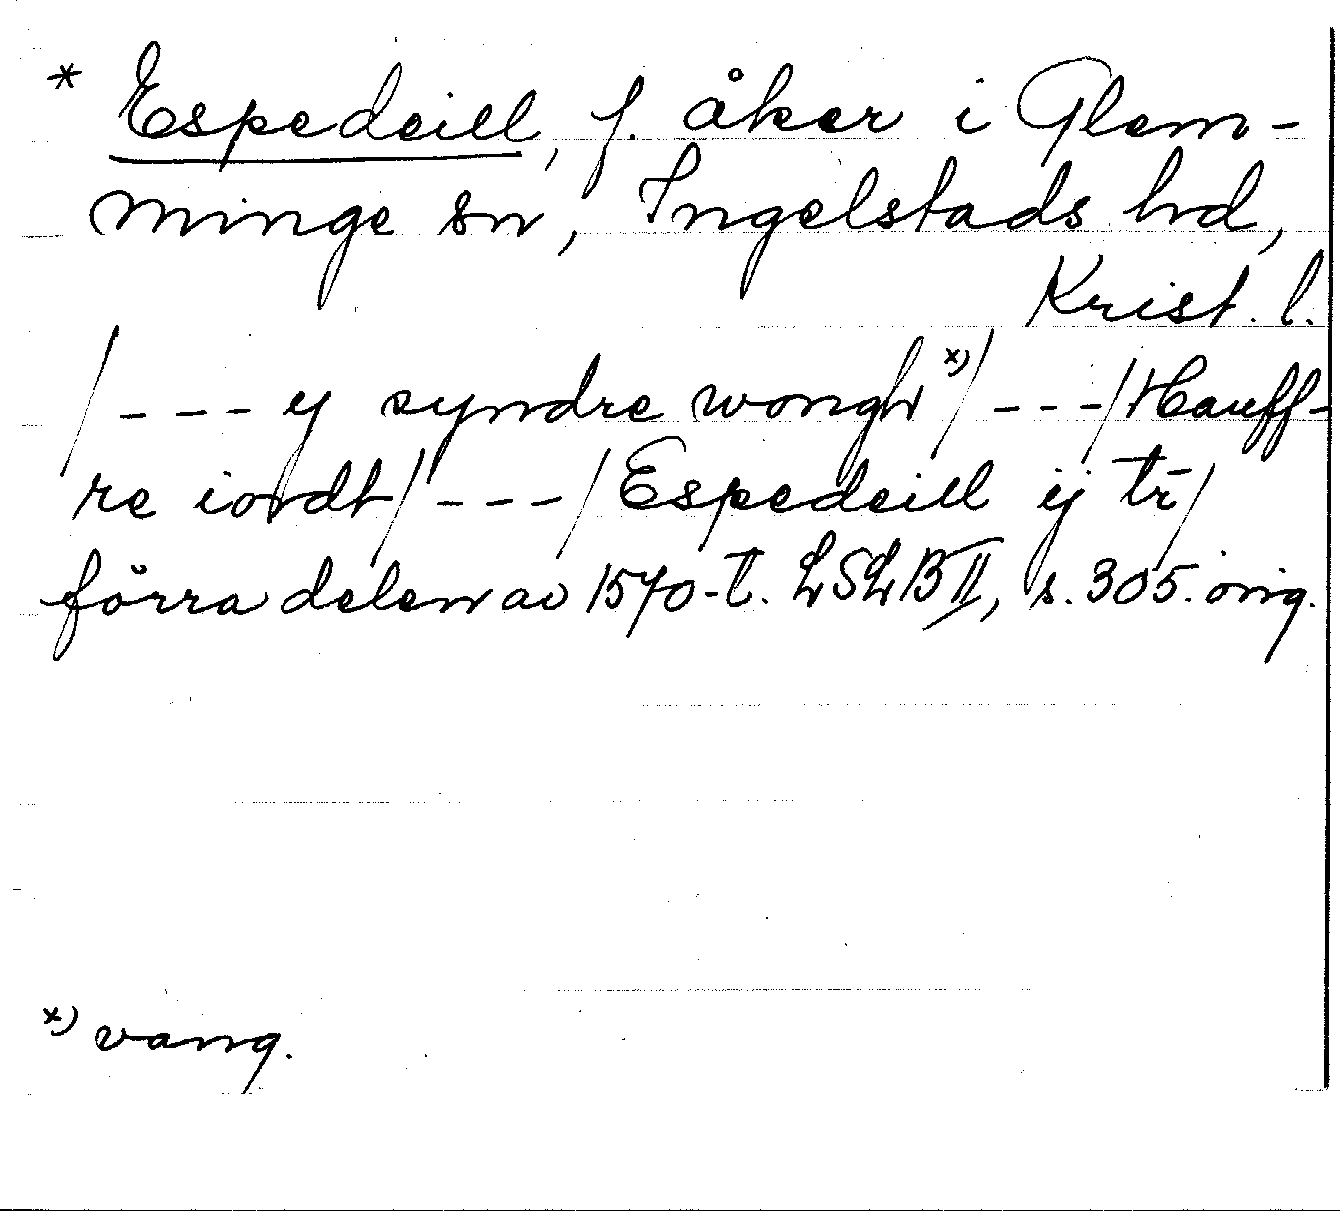 * Espedeill, f. åker i Glem-
minge sn, Ingelstads hd,
Krist. l.
/---y syndre wongh x)/---/Hauff-
re iordt/---/Espedeill ij tr̄/
förra delen av 1570-t. LSLB II, s. 305. orig.
x) vang.